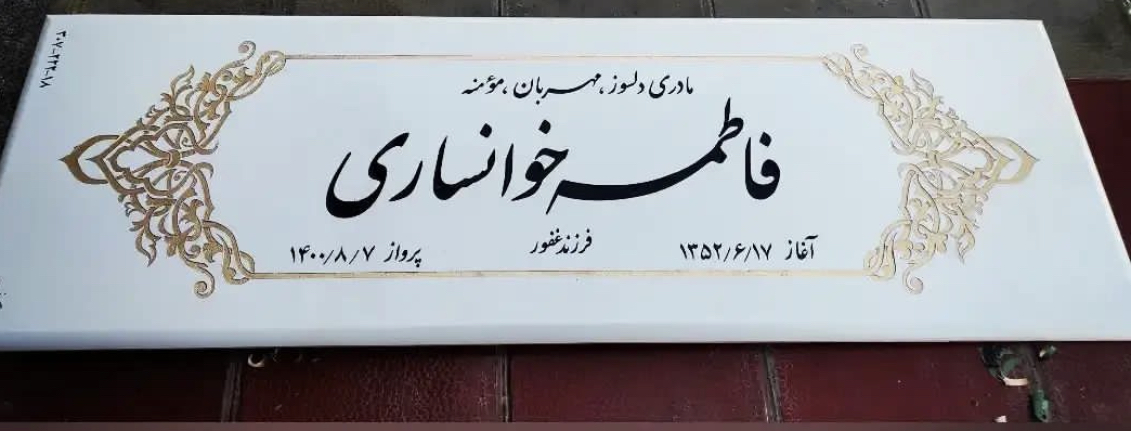 مادری دلسوز، مهربان، مؤمنه
فاطمه خوانساری
آغاز ۱۳۵۲/۶/۱۷
فرزند غفور
پرواز ۱۴۰۰/۸/۷
۳۰۷-۲۲۲-۱۸